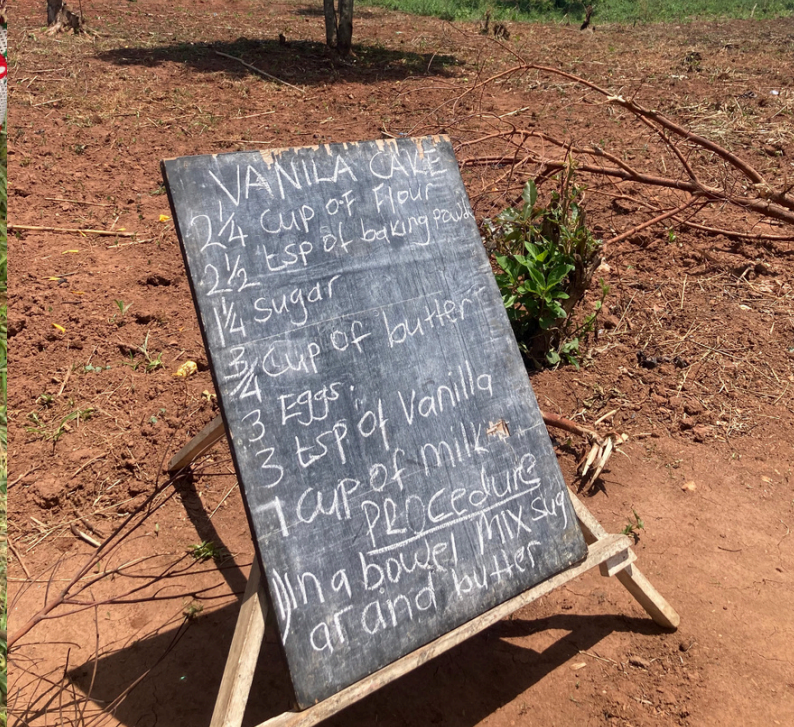 VANILA CAKE
2 1/4 cup of Flour
2 1/2 tsp of baking powd
1 1/4 sugar
3/4 cup of butter
3 Eggs.
3 tsp of Vanilla
1 cup of milk
PROCEDURE
1) In a bowel MIX sug
ar and butter